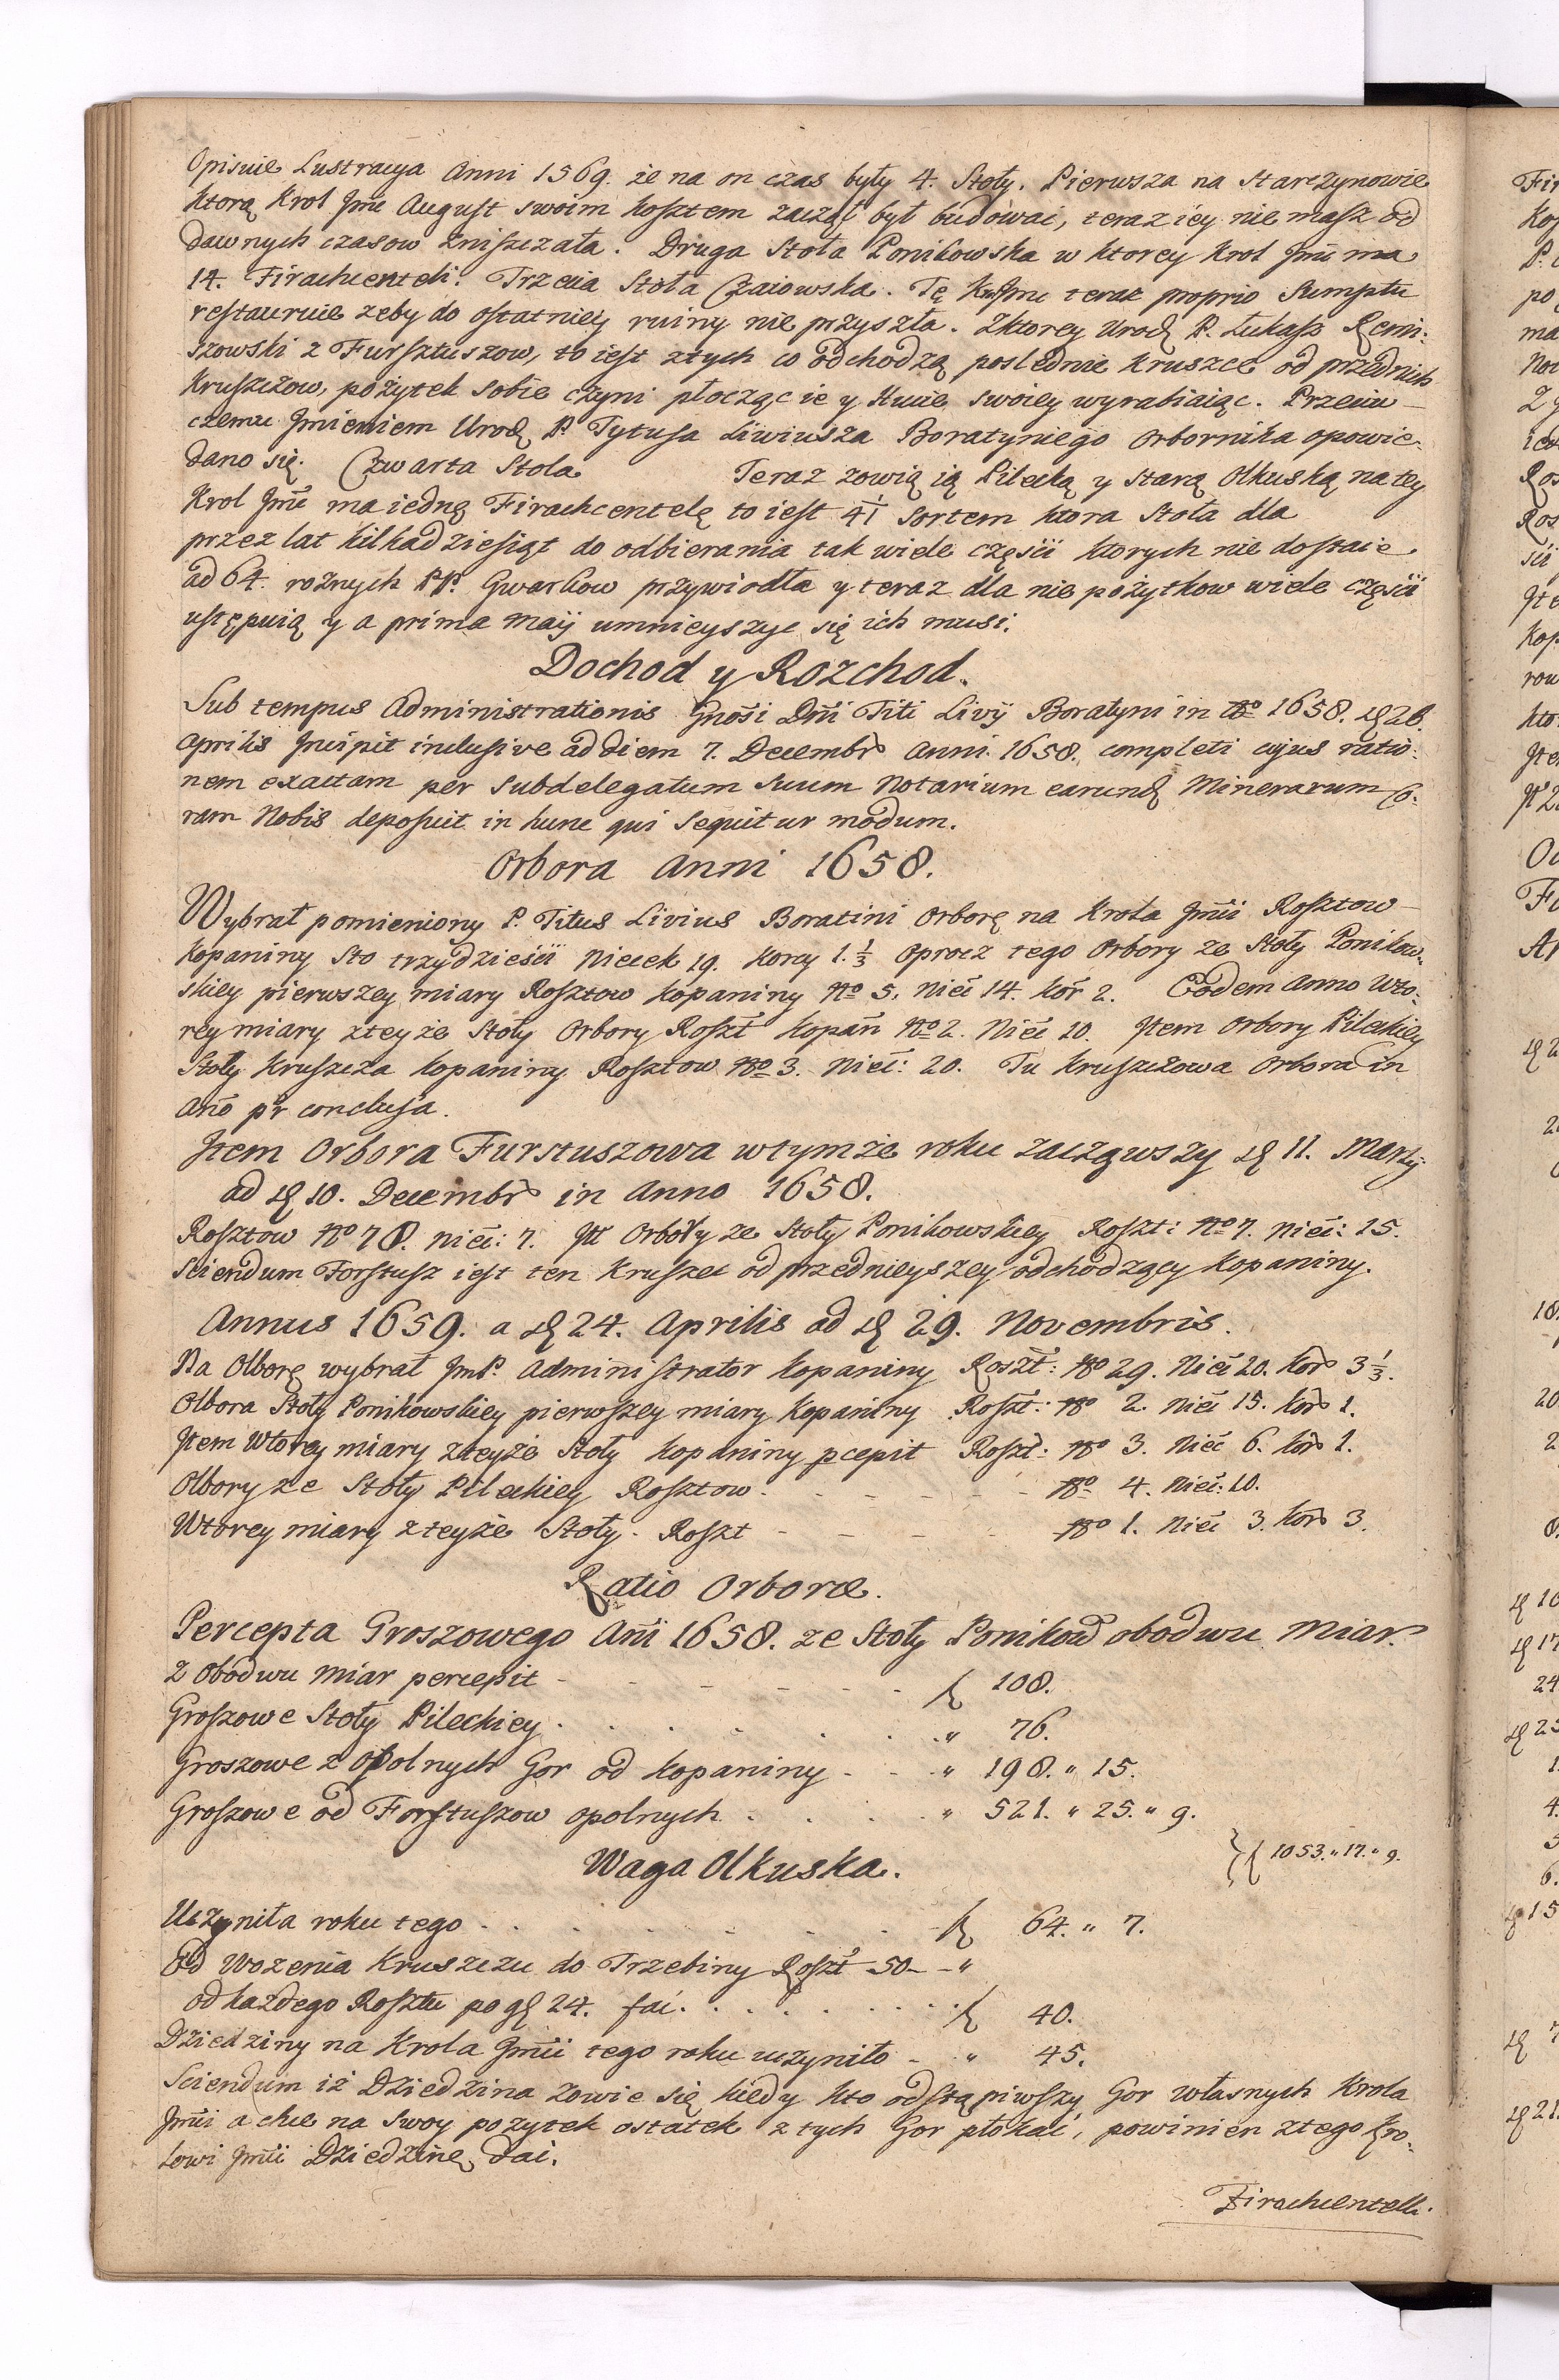 Opisuie Lustracya Anni 1569. że na on czas były 4. Stoły. Pierwsza na Starczynowie
ktorą Krol Jmć August swoim kosztem zaczął był budować, teraz iey nie masz od
dawnych czasow zniszczała. Druga Stoła Ponikowska w ktorey Krol Jmć ma
14. Firachcenteli. Trzecia Stoła Czaiowska. Tę KrJmć teraz proprio Sumptu
restauruie zeby do ostatniey ruiny nie przyszła. Zktorey Urod P. Łukasz Remi:
szowski z Fursztuszow, to iest ztych co odchodzą poslednie Kruszce od przednich
Kruszczow, pożytek sobie czyni płocząc ie y Hucie swoiey wyrabiaiąc. Przeciw
czemu Jmieniem Urod P. Tytusa Liwiusza Boratyniego Orbornika opowie-
dano się. Czwarta Stola Teraz zowią ią Pilecką y Starą Olkuską na tey
Krol Jmć ma iedną Firachcentelę to iest 41 Sortem ktora Stoła dla
przez lat kilkadziesiąt do odbierania tak wiele części ktorych nie dostaie
ad 64. rożnych PP. Gwarkow przywiodła y teraz dla nie pożytkow wiele części
ustępuią y a prima Maij umnieyszyc się ich musi.
Dochod y Rozchod.
Sub tempus Administrationis Gnosi Dni Titi Livij Boratyni in Ao 1658. d 26.
Aprilis Incipit inclusive ad diem 7. Decembr Anni 1658. completi cujus ratio:
nem exactam per Subdelegatum suum Notarium earund Minerarum Co:
ram Nobis deposuit in hunc qui Sequitur modum.
Orbora Anni 1658.
Wybrał pomieniony P. Titus Livius Boratini Orborę na Krola Jmci Rosztow
Kopaniny Sto trzydzieści Niecek 19. Korcy 1. 1/3 Oprocz tego Orbory ze Stoły Ponikow:
skiey pierwszey miary Rosztow kopaniny No 5. Nieć 14. kor 2. Eodem Anno Wto:
rey miary zteyże Stoły Orbory Roszt kopan No 2. Niec 10. Jtem Orbory Pileckiey
Stoły Kruszcza kopaniny Rosztow No 3. Niec: 20. Tu kruszczowa Orbora in
Ano pr conclusa.
Jtem Orbora Furstuszowa wtymże roku zacząwszy d 11. Martij
ad d 10. Decembr in Anno 1658.
Rosztow No 78. niec: 7. Jtt Orbory ze Stoły Ponikowskiey Roszt: No 7. niec: 15.
Sciendum Forstusz iest ten Kruszec od przednieyszey odchodzący Kopaniny.
Annus 1659. a d 24. Aprilis ad d 29. Novembris.
Na Olborę wybrał JmP. Administrator kopaniny Roszt: No 29. Niec 20. kor 3 1/3.
Olbora Stoły Ponikowskiey pierwszey miary Kopaniny Roszt: No 2. niec 15. kor 1.
Jtem Wtorey miary zteyże Stoły kopaniny pcepit Roszt: No 3. niec 6. kor 1.
Olbory ze Stoły Pileckiey Rosztow. No 4. niec: 10.
Wtorey miary zteyże Stoły. Roszt No 1. niec 3. kor 3.
Ratio Orboræ.
Percepta Groszowego Ani 1658. ze Stoły Ponikow obodwu Miar.
z obodwu miar percepit f 108.
Groszowe Stoły Pileckiey " 76.
Groszowe z opolnych Gor od kopaniny " 198. " 15.
Groszowe od Forstuszow opolnych " 521. " 25. " 9.
f 1053. " 17. " 9.
Waga Olkuska.
Uczyniła roku tego f 64. " 7.
Od Wożenia Kruszczu do Trzebiny Roszt 50 "
od każdego Rosztu po g 24. fac. f 40.
Dziedziny na Krola Jmci tego roku uczyniło " 45.
Sciendum iż Dziedzina zowie się kiedy kto odstąpiwszy Gor własnych Krola
Jmci a chce na swoy pożytek ostatek z tych Gor płokać, powinien ztego Kro:
lowi Jmci Dziedzinę dać.
Firachcentelli.